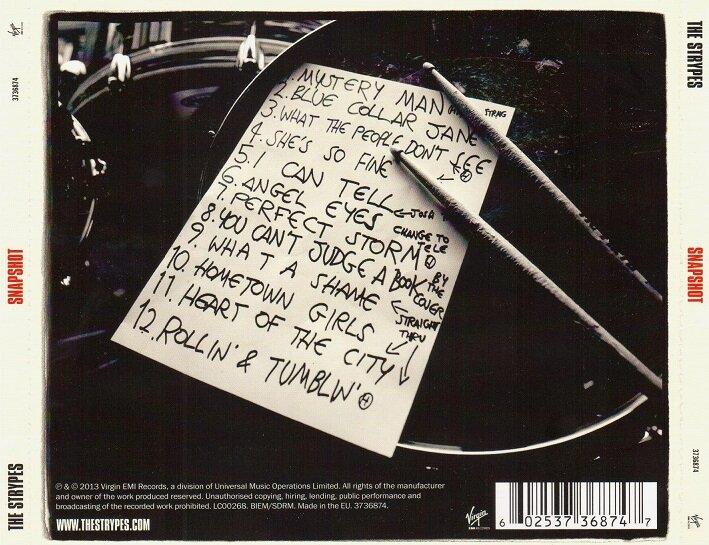 THE STRYPES
SNAPSHOT
3736874
1. MYSTERY MAN
2. BLUE COLLAR JANE
3. WHAT THE PEOPLE DON'T SEE
4. SHE'S SO FINE
5. I CAN TELL
6. ANGEL EYES
7. PERFECT STORM
8. YOU CAN'T JUDGE A BOOK BY THE COVER
9. WHAT A SHAME
10. HOMETOWN GIRLS
11. HEART OF THE CITY
12. ROLLIN' & TUMBLIN' H
CHANGE TO
TELE
STRAIGHT
THRU
℗ & © 2013 Virgin EMI Records, a division of Universal Music Operations Limited. All rights of the manufacturer
and owner of the work produced reserved. Unauthorised copying, hiring, lending, public performance and
broadcasting of the recorded work prohibited. LC00268. BIEM/SDRM. Made in the EU. 3736874.
WWW.THESTRYPES.COM
Virgin
EMI RECORDS
6 02537 36874 7
THE STRYPES
SNAPSHOT
3736874